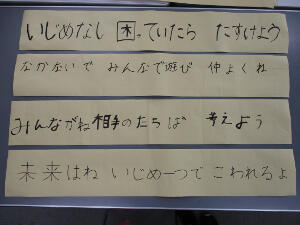 いじめなし 困っていたら たすけよう
なかないで みんなで遊び 仲よくね
みんながね 相手のたちば 考えよう
未来はね いじめ一つで こわれるよ